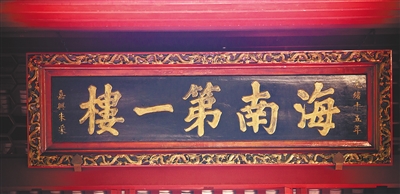 緒十五年
海南第一樓
嘉興朱采